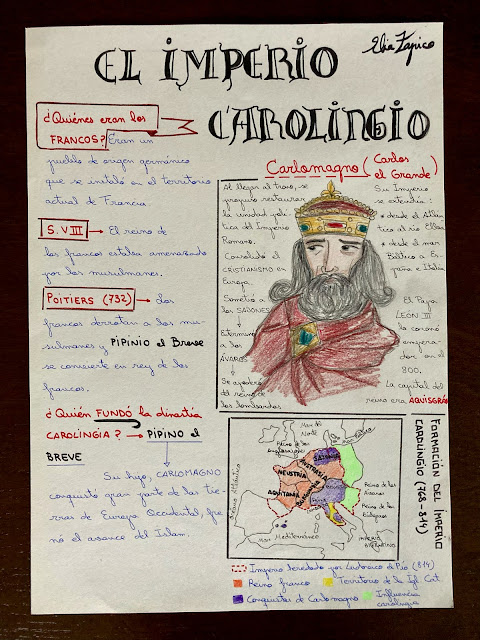 Elia Zapico
EL IMPERIO
CAROLINGIO
¿Quiénes eran los
FRANCOS? Eran un
pueblo de origen germánico
que se instaló en el territorio
actual de Francia
S. VIII → El reino de
los francos estaba amenazado
por los musulmanes.
POITIERS (732) → Los
francos derrotan a los mu-
sulmanes y PIPINIO el Breve
se convierte en rey de los
francos.
¿Quién FUNDÓ la dinastía
CAROLINGIA? → PIPINO el
BREVE
Su hijo, CARLOMAGNO
conquistó gran parte de las tie-
rras de Europa Occidental, fre-
nó el avance del Islam.
Carlomagno (Carlos
el Grande)
Al llegar al trono, se
propuso restaurar
la unidad polí-
tica del Imperio
Romano.
Consolidó el
CRISTIANISMO en
Europa
Sometió a
los SAJONES
Exterminó
a los
ÁVAROS
Se apoderó
del reino de
los lombardos
Su Imperio
se extendía:
* desde el Atlán-
tico al río Elba
* desde el mar
Báltico a Es-
paña e Italia
El Papa
LEÓN III
lo coronó
empera-
dor en el
800.
La capital del
reino era AQUISGRÁN
FORMACIÓN DEL IMPERIO
CAROLINGIO (768-814)
Mar del
Norte
Reino de los
SAJONIA
AUSTRASIA
NEUSTRIA
AQUITANIA
Océano Atlántico
Reino de los
Ávaros
Reino de los
Búlgaros
Mar Mediterráneo
IMPERIO
BIZANTINO
Imperio heredado por Ludovico el Pío (814)
Reino franco
Territorio de la Igl. Cat
Conquistas de Carlomagno
Influencia
carolingia